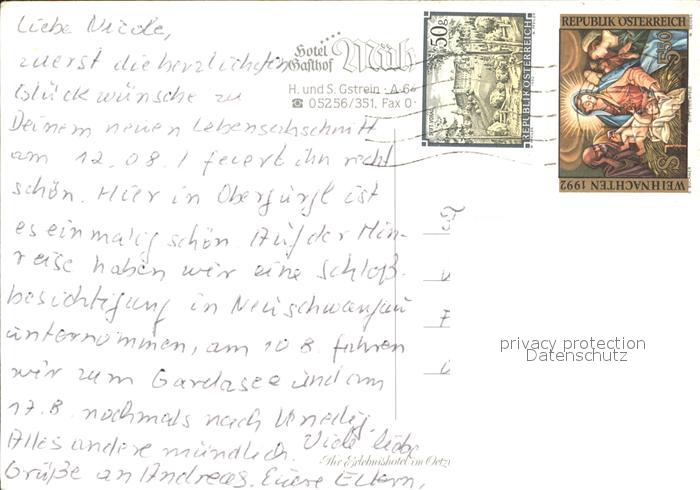 Liebe Nicole,
zuerst die herzlichsten
Glückwünsche zu
Deinem neuen Lebensabschnitt
am 12.08.! feiert ihn recht
schön. Hier in Obergurgl ist
es einmalig schön. Auf der Hin-
reise haben wir eine Schloß-
besichtigung in Neuschwanstein
unternommen, am 10.8. fahren
wir zum Gardasee und am
17.8. nochmals nach Venedig.
Alles andere mündlich. Viele liebe
Grüße an Andreas. Eure Eltern,
Hotel
Gasthof
H. und S. Gstrein · A-64
☎ 05256/351, Fax 0
Ihr Erlebnishotel im Oetz
50g
REPUBLIK ÖSTERREICH
REPUBLIK ÖSTERREICH
5.50
S
WEIHNACHTEN 1992
privacy protection
Datenschutz